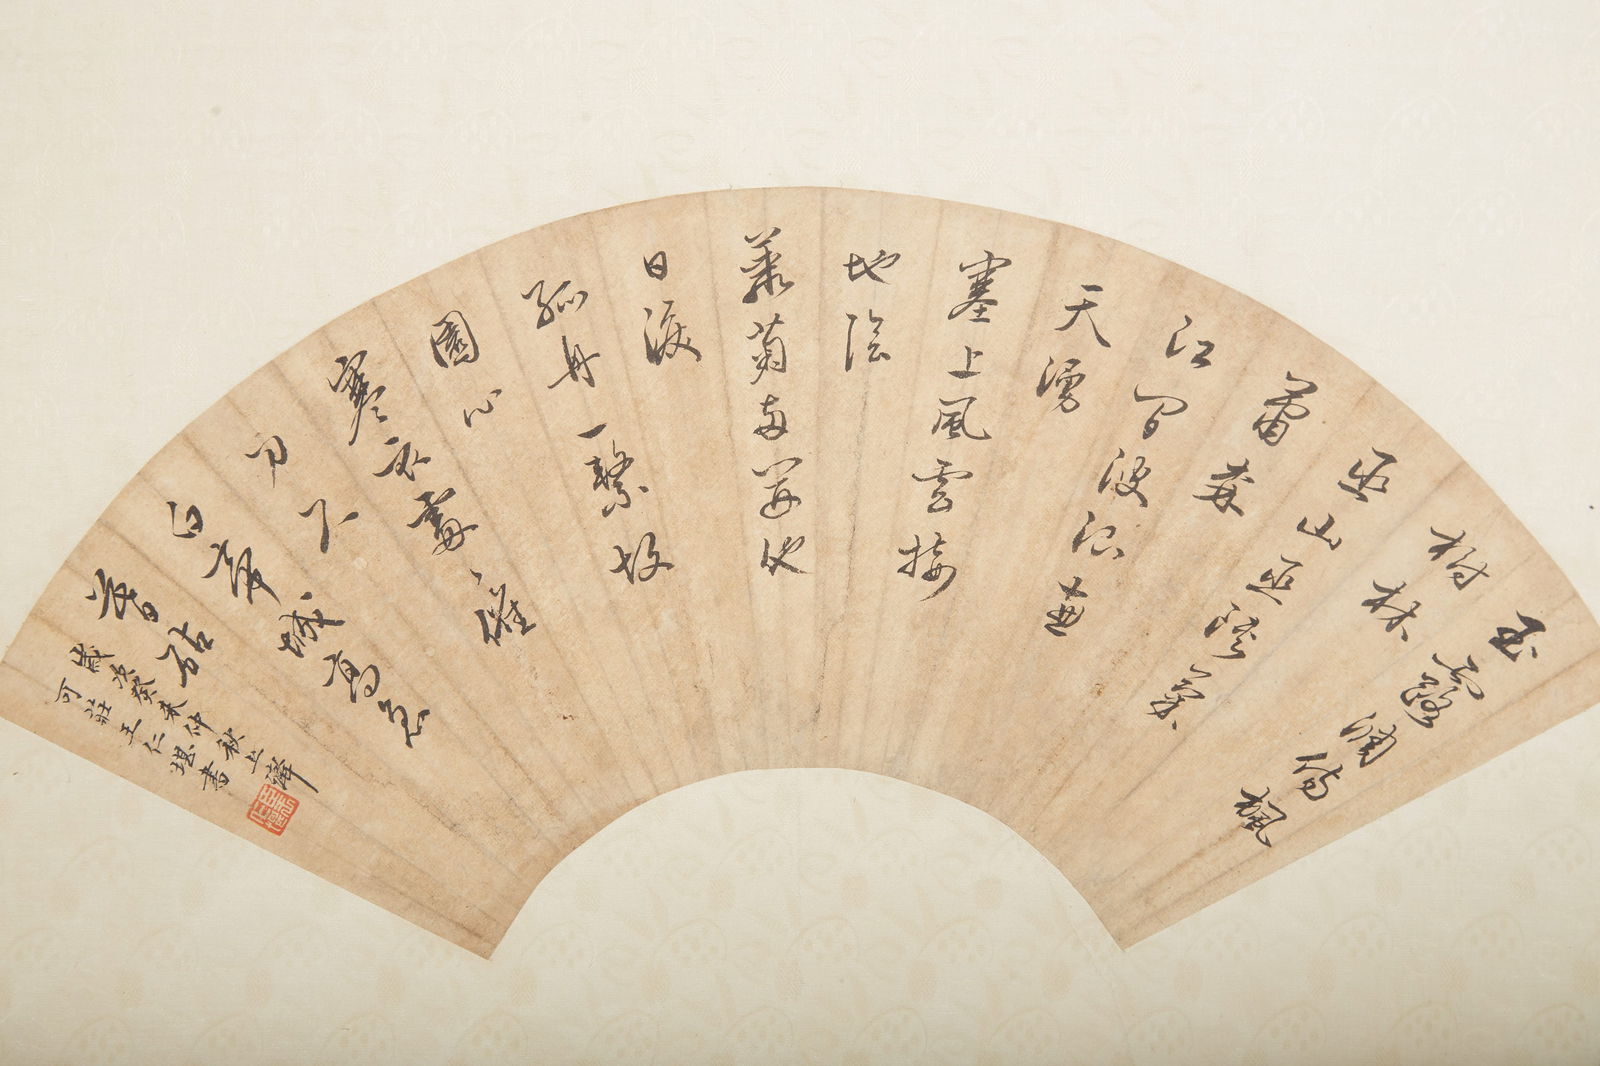 玉露凋傷楓
樹林
巫山巫峽氣
蕭森
江間波浪兼
天湧
塞上風雲接
地陰
叢菊兩開他
日淚
孤舟一繫故
園心
寒衣處〻催
刀尺
白帝城高急
暮砧
歲次癸未仲秋上澣
可莊王仁堪書